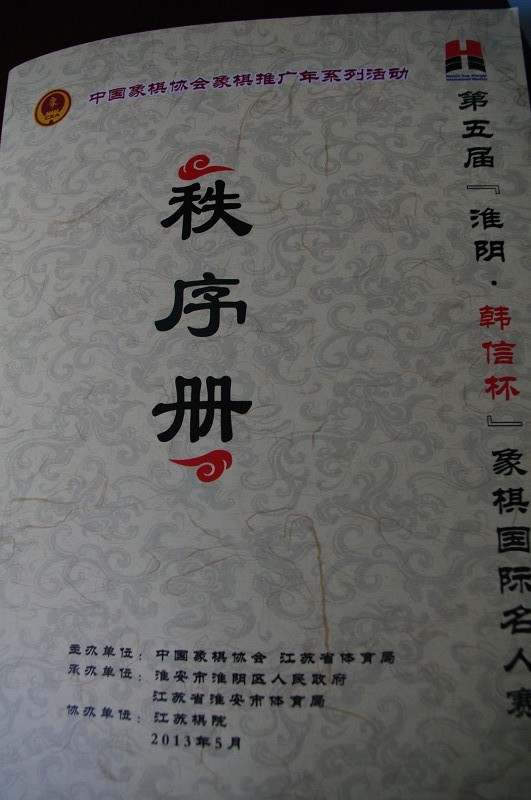 中国象棋协会象棋推广年系列活动
第五届『淮阴·韩信杯』象棋国际名人赛
秩序册
主办单位：中国象棋协会 江苏省体育局
承办单位：淮安市淮阴区人民政府
江苏省淮安市体育局
协办单位：江苏棋院
2013年5月